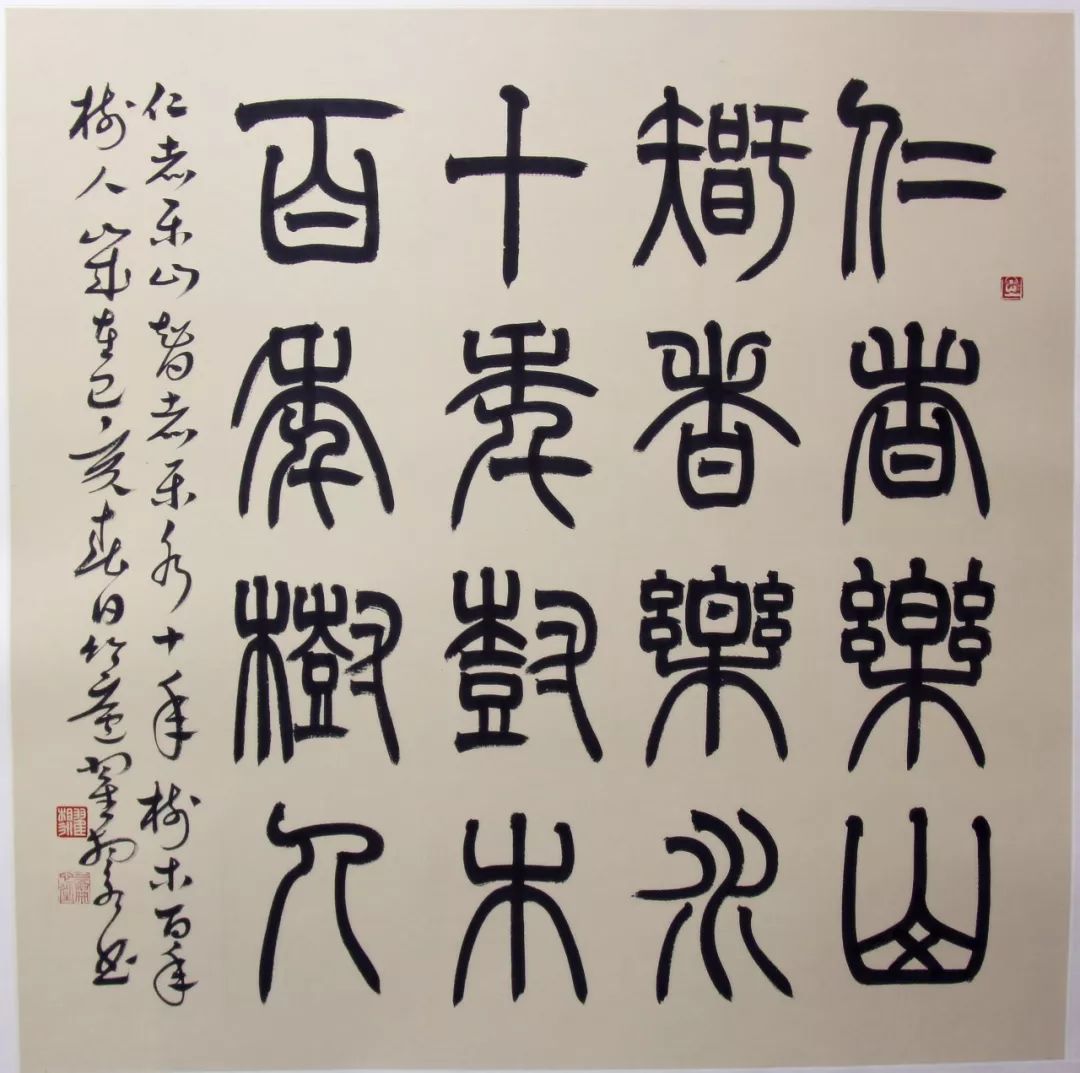 仁者樂山
智者樂水
十年樹木
百年樹人
仁者乐山智者乐水十年树木百年
树人 岁在己亥春日